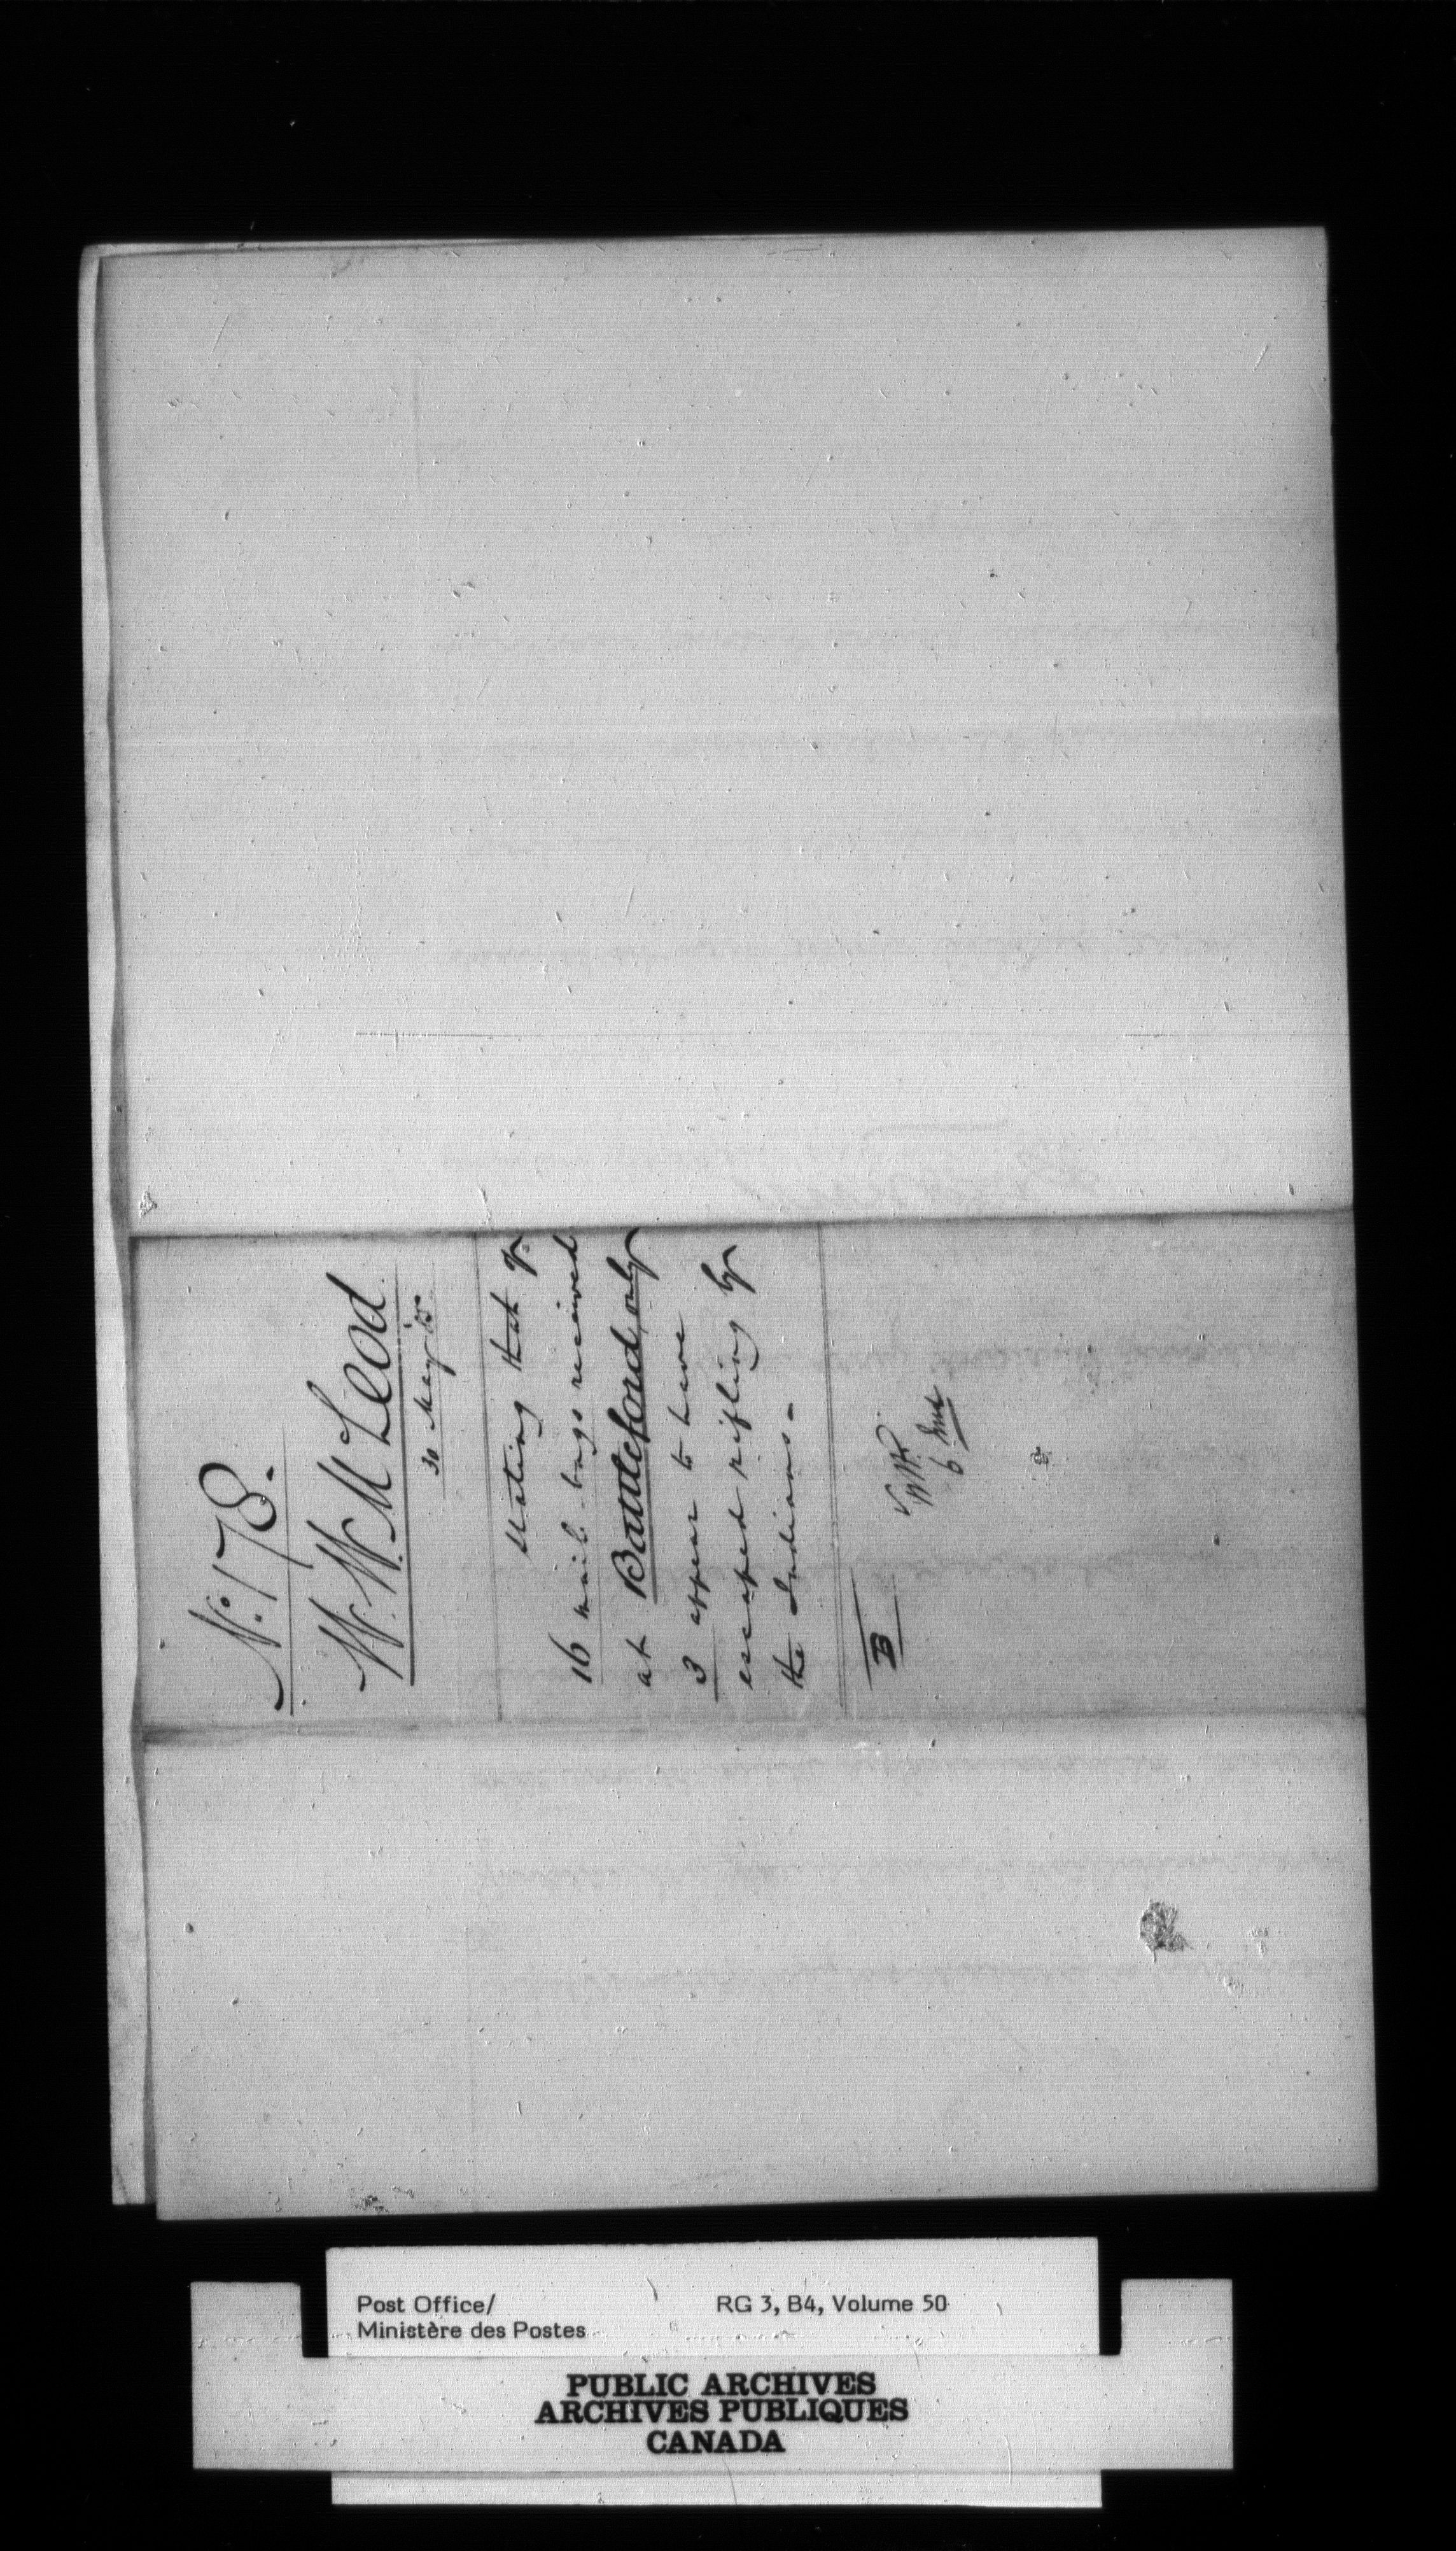 No: 178.
W. W. McLeod
30 May 85
Stating that of
16 mail-bags received
at Battleford, only
3 appear to have
escaped rifling by
the Indians -
B
6 June
Post Office/
Ministère des Postes
RG 3, B4, Volume 50
PUBLIC ARCHIVES
ARCHIVES PUBLIQUES
CANADA